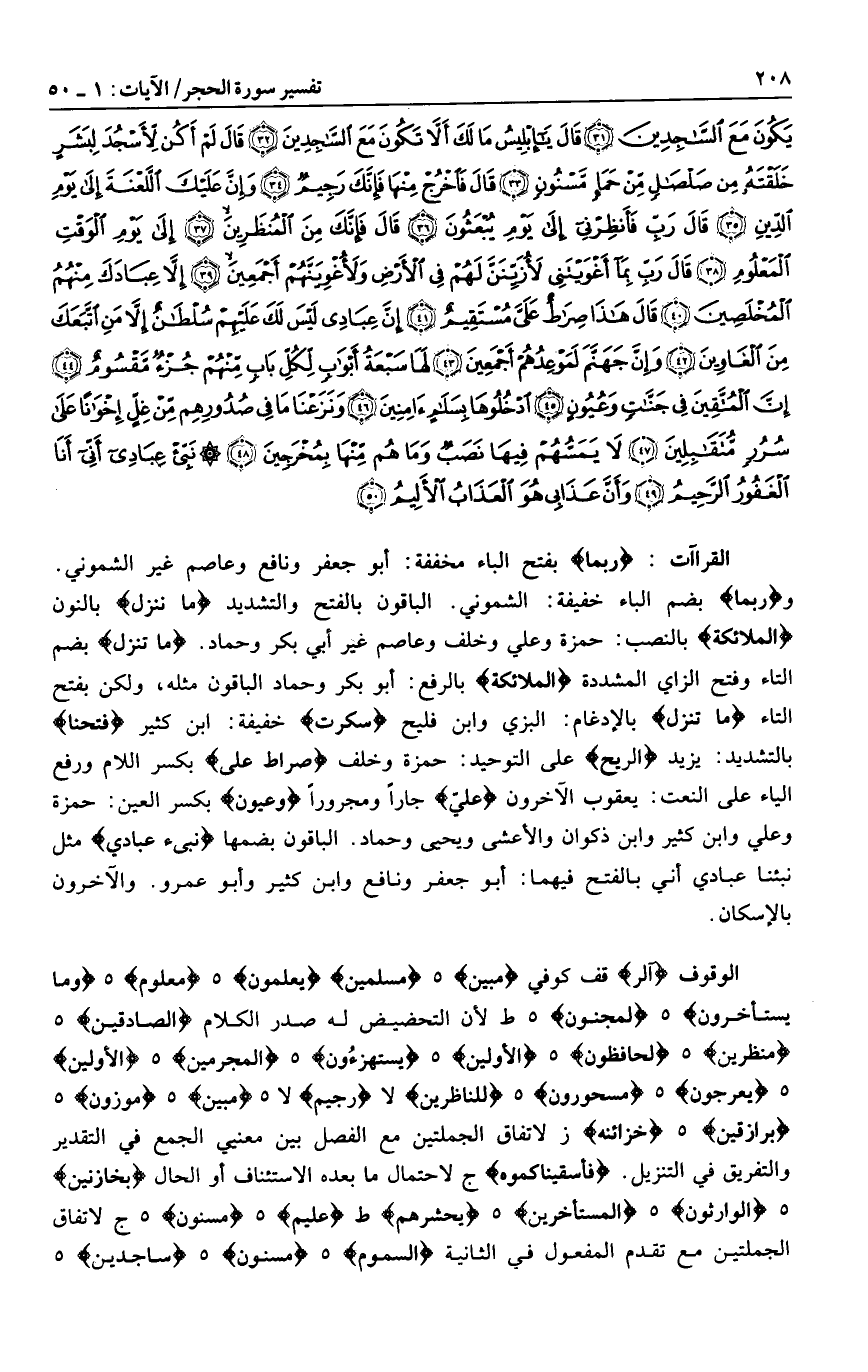 ٢٠٨
تفسير سورة الحجر/ الآيات: ١ ـ ٥٠
يَكُونَ مَعَ ٱلسَّٰجِدِينَ ﴿٣١﴾ قَالَ يَٰٓإِبْلِيسُ مَا لَكَ أَلَّا تَكُونَ مَعَ ٱلسَّٰجِدِينَ ﴿٣٢﴾ قَالَ لَمْ أَكُن لِّأَسْجُدَ لِبَشَرٍ
خَلَقْتَهُۥ مِن صَلْصَٰلٍ مِّنْ حَمَإٍ مَّسْنُونٍ ﴿٣٣﴾ قَالَ فَٱخْرُجْ مِنْهَا فَإِنَّكَ رَجِيمٌ ﴿٣٤﴾ وَإِنَّ عَلَيْكَ ٱللَّعْنَةَ إِلَىٰ يَوْمِ
ٱلدِّينِ ﴿٣٥﴾ قَالَ رَبِّ فَأَنظِرْنِىٓ إِلَىٰ يَوْمِ يُبْعَثُونَ ﴿٣٦﴾ قَالَ فَإِنَّكَ مِنَ ٱلْمُنظَرِينَ ﴿٣٧﴾ إِلَىٰ يَوْمِ ٱلْوَقْتِ
ٱلْمَعْلُومِ ﴿٣٨﴾ قَالَ رَبِّ بِمَآ أَغْوَيْتَنِى لَأُزَيِّنَنَّ لَهُمْ فِى ٱلْأَرْضِ وَلَأُغْوِيَنَّهُمْ أَجْمَعِينَ ﴿٣٩﴾ إِلَّا عِبَادَكَ مِنْهُمُ
ٱلْمُخْلَصِينَ ﴿٤٠﴾ قَالَ هَٰذَا صِرَٰطٌ عَلَىَّ مُسْتَقِيمٌ ﴿٤١﴾ إِنَّ عِبَادِى لَيْسَ لَكَ عَلَيْهِمْ سُلْطَٰنٌ إِلَّا مَنِ ٱتَّبَعَكَ
مِنَ ٱلْغَاوِينَ ﴿٤٢﴾ وَإِنَّ جَهَنَّمَ لَمَوْعِدُهُمْ أَجْمَعِينَ ﴿٤٣﴾ لَهَا سَبْعَةُ أَبْوَٰبٍ لِّكُلِّ بَابٍ مِّنْهُمْ جُزْءٌ مَّقْسُومٌ ﴿٤٤﴾
إِنَّ ٱلْمُتَّقِينَ فِى جَنَّٰتٍ وَعُيُونٍ ﴿٤٥﴾ ٱدْخُلُوهَا بِسَلَٰمٍ ءَامِنِينَ ﴿٤٦﴾ وَنَزَعْنَا مَا فِى صُدُورِهِم مِّنْ غِلٍّ إِخْوَٰنًا عَلَىٰ
سُرُرٍ مُّتَقَٰبِلِينَ ﴿٤٧﴾ لَا يَمَسُّهُمْ فِيهَا نَصَبٌ وَمَا هُم مِّنْهَا بِمُخْرَجِينَ ﴿٤٨﴾ ۞ نَبِّئْ عِبَادِىٓ أَنِّىٓ أَنَا
ٱلْغَفُورُ ٱلرَّحِيمُ ﴿٤٩﴾ وَأَنَّ عَذَابِى هُوَ ٱلْعَذَابُ ٱلْأَلِيمُ ﴿٥٠﴾
القراآت : ﴿ربما﴾ بفتح الباء مخففة: أبو جعفر ونافع وعاصم غير الشموني.
و﴿ربما﴾ بضم الباء خفيفة: الشموني. الباقون بالفتح والتشديد ﴿ما ننزل﴾ بالنون
﴿الملائكة﴾ بالنصب: حمزة وعلي وخلف وعاصم غير أبي بكر وحماد. ﴿ما تنزل﴾ بضم
التاء وفتح الزاي المشددة ﴿الملائكة﴾ بالرفع: أبو بكر وحماد الباقون مثله، ولكن بفتح
التاء ﴿ما تنزل﴾ بالإدغام: البزي وابن فليح ﴿سكرت﴾ خفيفة: ابن كثير ﴿فتحنا﴾
بالتشديد: يزيد ﴿الريح﴾ على التوحيد: حمزة وخلف ﴿صراط على﴾ بكسر اللام ورفع
الياء على النعت: يعقوب الآخرون ﴿عليّ﴾ جاراً ومجروراً ﴿وعيون﴾ بكسر العين: حمزة
وعلي وابن كثير وابن ذكوان والأعشى ويحيى وحماد. الباقون بضمها ﴿نبىء عبادي﴾ مثل
نبئنا عبادي أني بالفتح فيهما: أبو جعفر ونافع وابن كثير وأبو عمرو. والآخرون
بالإسكان.
الوقوف ﴿آلر﴾ قف كوفي ﴿مبين﴾ ٥ ﴿مسلمين﴾ ﴿يعلمون﴾ ٥ ﴿معلوم﴾ ٥ ﴿وما
يستأخرون﴾ ٥ ﴿لمجنون﴾ ٥ ط لأن التحضيض له صدر الكلام ﴿الصادقين﴾ ٥
﴿منظرين﴾ ٥ ﴿لحافظون﴾ ٥ ﴿الأولين﴾ ٥ ﴿يستهزءُون﴾ ٥ ﴿المجرمين﴾ ٥ ﴿الأولين﴾
٥ ﴿يعرجون﴾ ٥ ﴿مسحورون﴾ ٥ ﴿للناظرين﴾ لا ﴿رجيم﴾ لا ٥ ﴿مبين﴾ ٥ ﴿موزون﴾ ٥
﴿برازقين﴾ ٥ ﴿خزائنه﴾ ز لاتفاق الجملتين مع الفصل بين معنيي الجمع في التقدير
والتفريق في التنزيل. ﴿فأسقيناكموه﴾ ج لاحتمال ما بعده الاستئناف أو الحال ﴿بخازنين﴾
٥ ﴿الوارثون﴾ ٥ ﴿المستأخرين﴾ ٥ ﴿يحشرهم﴾ ط ﴿عليم﴾ ٥ ﴿مسنون﴾ ٥ ج لاتفاق
الجملتين مع تقدم المفعول في الثانية ﴿السموم﴾ ٥ ﴿مسنون﴾ ٥ ﴿ساجدين﴾ ٥